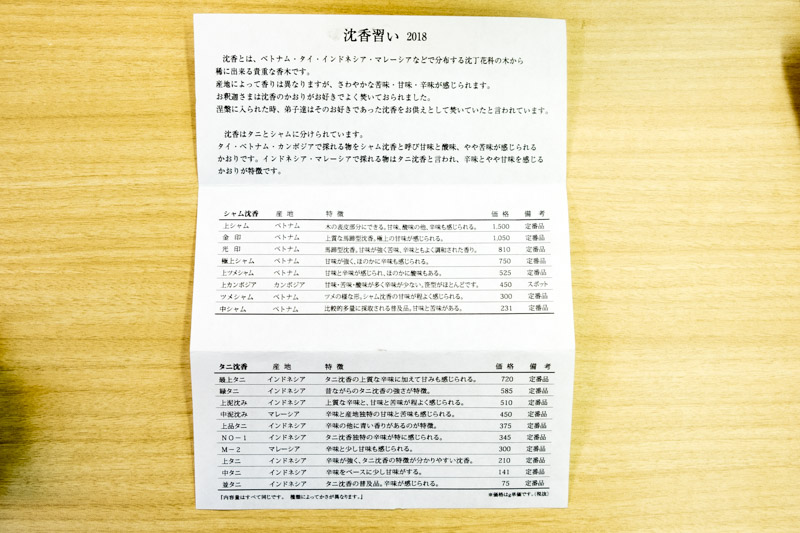 沈香習い 2018
沈香とは、ベトナム・タイ・インドネシア・マレーシアなどで分布する沈丁花科の木から
稀に出来る貴重な香木です。
産地によって香りは異なりますが、さわやかな苦味・甘味・辛味が感じられます。
お釈迦さまは沈香のかおりがお好きでよく焚いておられました。
涅槃に入られた時、弟子達はそのお好きであった沈香をお供えとして焚いていたと言われています。
沈香はタニとシャムに分けられています。
タイ・ベトナム・カンボジアで採れる物をシャム沈香と呼び甘味と酸味、やや苦味が感じられる
かおりです。インドネシア・マレーシアで採れる物はタニ沈香と言われ、辛味とやや甘味を感じる
かおりが特徴です。
シャム沈香 産地 特徴 価格 備考
上シャム ベトナム 木の表皮部分にできる。甘味、酸味の他、辛味も感じられる。 1,500 定番品
金印 ベトナム 上質な馬蹄型沈香。極上の甘味が感じられる。 1,050 定番品
光印 ベトナム 馬蹄型沈香。甘味が強く苦味、辛味ともよく調和された香り。 810 定番品
極上シャム ベトナム 甘味が強く、ほのかに辛味も感じられる。 750 定番品
上ツメシャム ベトナム 甘味と辛味が感じられ、ほのかに酸味もある。 525 定番品
上カンボジア カンボジア 甘味・苦味・酸味が多く辛味が少ない。笹型がほとんどです。 450 スポット
ツメシャム ベトナム ツメの様な形。シャム沈香の甘味が程よく感じられる。 300 定番品
中シャム ベトナム 比較的多量に採取される普及品。甘味と苦味がある。 231 定番品
タニ沈香 産地 特徴 価格 備考
最上タニ インドネシア タニ沈香の上質な辛味に加えて甘みも感じられる。 720 定番品
緑タニ インドネシア 昔ながらのタニ沈香の強さが特徴。 585 定番品
上泥沈み インドネシア 上質な辛味と、甘味と苦味が程よく感じられる。 510 定番品
中泥沈み マレーシア 辛味と産地独特の甘味と苦味も感じられる。 450 定番品
上品タニ インドネシア 辛味の他に青い香りがあるのが特徴。 375 定番品
NO－1 インドネシア タニ沈香独特の辛味が特に感じられる。 345 定番品
M－2 マレーシア 辛味と少し甘味も感じられる。 300 定番品
上タニ インドネシア 辛味が強く、タニ沈香の特徴が分かりやすい沈香。 210 定番品
中タニ インドネシア 辛味をベースに少し甘味がする。 141 定番品
並タニ インドネシア タニ沈香の普及品。辛味が感じられる。 75 定番品
「内容量はすべて同じです。 種類によってかさが異なります。」 ※価格はg単価です。(税抜)